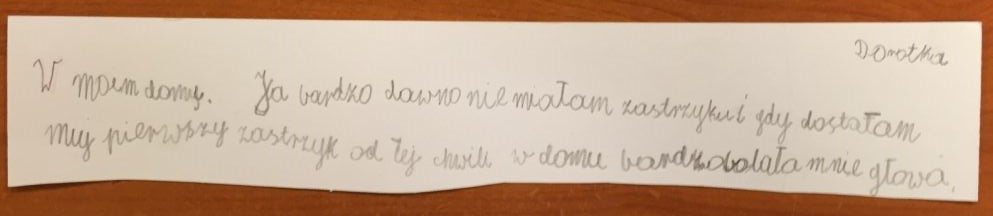 Dorotka
W moem domu. Ja bardzo dawno nie miałam zastrzyku i gdy dostałam
muj pierwszy zastrzyk od tej chwili w domu bardzo bolała mnie głowa.